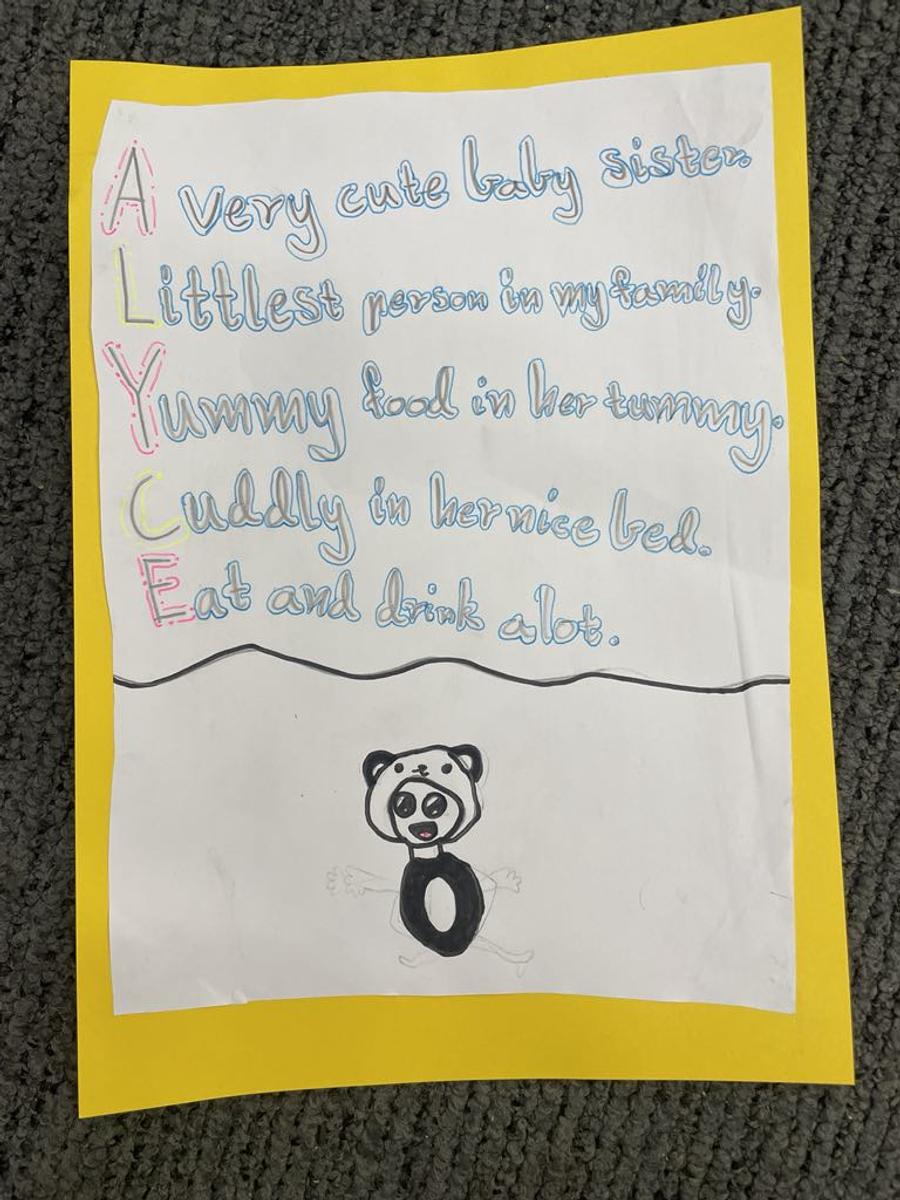 A Very cute baby sister.
Littlest person in my family.
Yummy food in her tummy.
Cuddly in her nice bed.
Eat and drink alot.